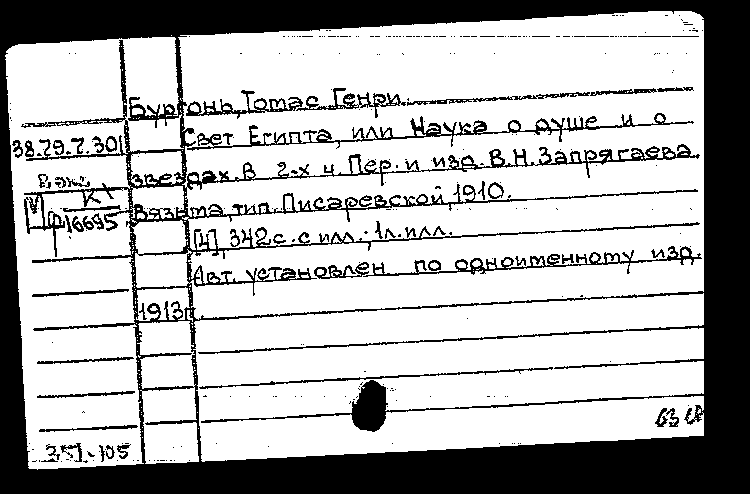 Бургонь, Томас Генри.
38.79.7.301 Свет Египта, или Наука о душе и о
звездах. В 2-х ч. Пер. и изд. В.Н. Запрягаева.
Вязьма, тип. Писаревской, 1910.
16695
[4], 342 с. с илл.; 1 л. илл.
Авт. установлен по одноименному изд.
1913 г.
351-105